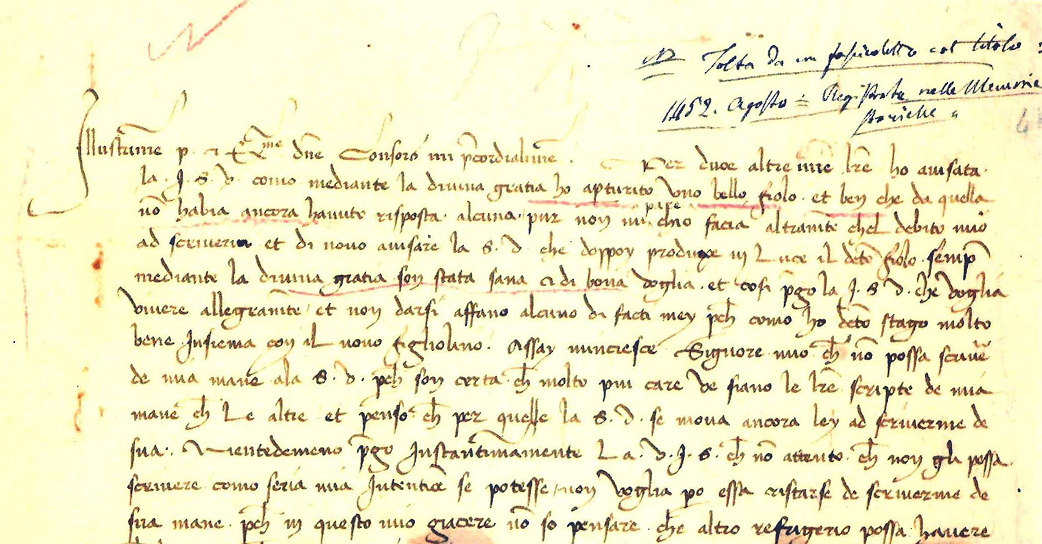 NB Tolta da un fascicoletto col titolo:
1452. Agosto = Registrata nelle Memorie
storiche "
Illustrissime p. et Ex.me dñe Consors mi p̃cordialissime. Per duoe altre mie lr̃e ho auisata
la. I. S. v. como mediante la diuina gratia ho apturito vno bello fiolo. et ben che da quella
nõ habia ancora hauuto risposta alcuna. pur non mi pare chio facia altramẽte chel debito mio
ad scriverui et di nouo auisare la S. v. che doppoy produxe in Luce il dcõ fiolo semp̃
mediante la diuina gratia son stata sana et di bona voglia. et cosi p̃go la I. S. v. che voglia
viuere allegramẽte et non darsi affano alcuno di facti mey p̃ch como ho dcõ stago molto
bene Insiema con il nouo figliolino. Assay nuncresce Signore mio ch̃ nõ possa scriuer̃
de mia mane ala S. v. p̃ch son certa ch̃ molto piu care ve siano le lr̃e scripte de mia
mane ch̃ Le altre et penso ch̃ per quelle la S. v. se moua ancora ley ad scriuerme de
sua. Nientedemeno p̃go Instantissimamente La. v. I. S. ch̃ nõ attento ch̃ non gli possa
scriuere como seria mia Intentiõe se potesse non voglia po essa ristarse de scriuerme de
sua mane. p̃ch in questo mio giacere nõ so pensare che altro refrigerio possa hauere